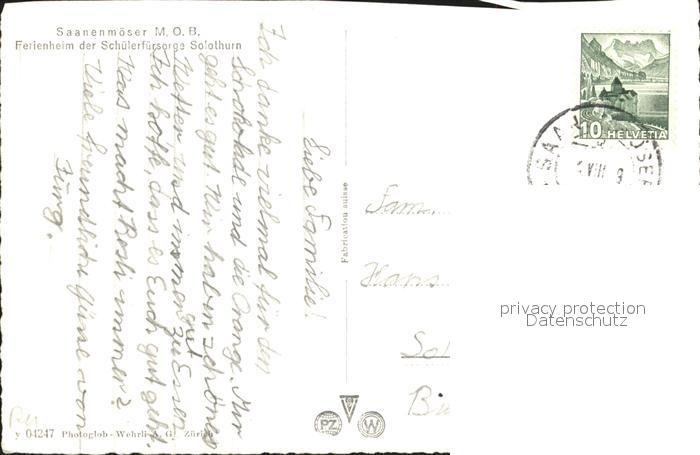 Saanenmöser M. O. B.
Ferienheim der Schülerfürsorge Solothurn
Liebe Familie!
Ich danke vielmal für den
Schokolade und die Orange. Mir
geht es gut. Wir haben schönes
Wetter und immer gut zu Essen.
Ich hoffe, dass es Euch gut geht.
Was macht Rosli immer?
Viele freundliche Grüsse von
Jürg.
Fabrication suisse
10 HELVETIA
VIII
Fam.
Hans
Sol
privacy protection
Datenschutz
PZ
W
y 04247 Photoglob-Wehrli A. G., Zürich